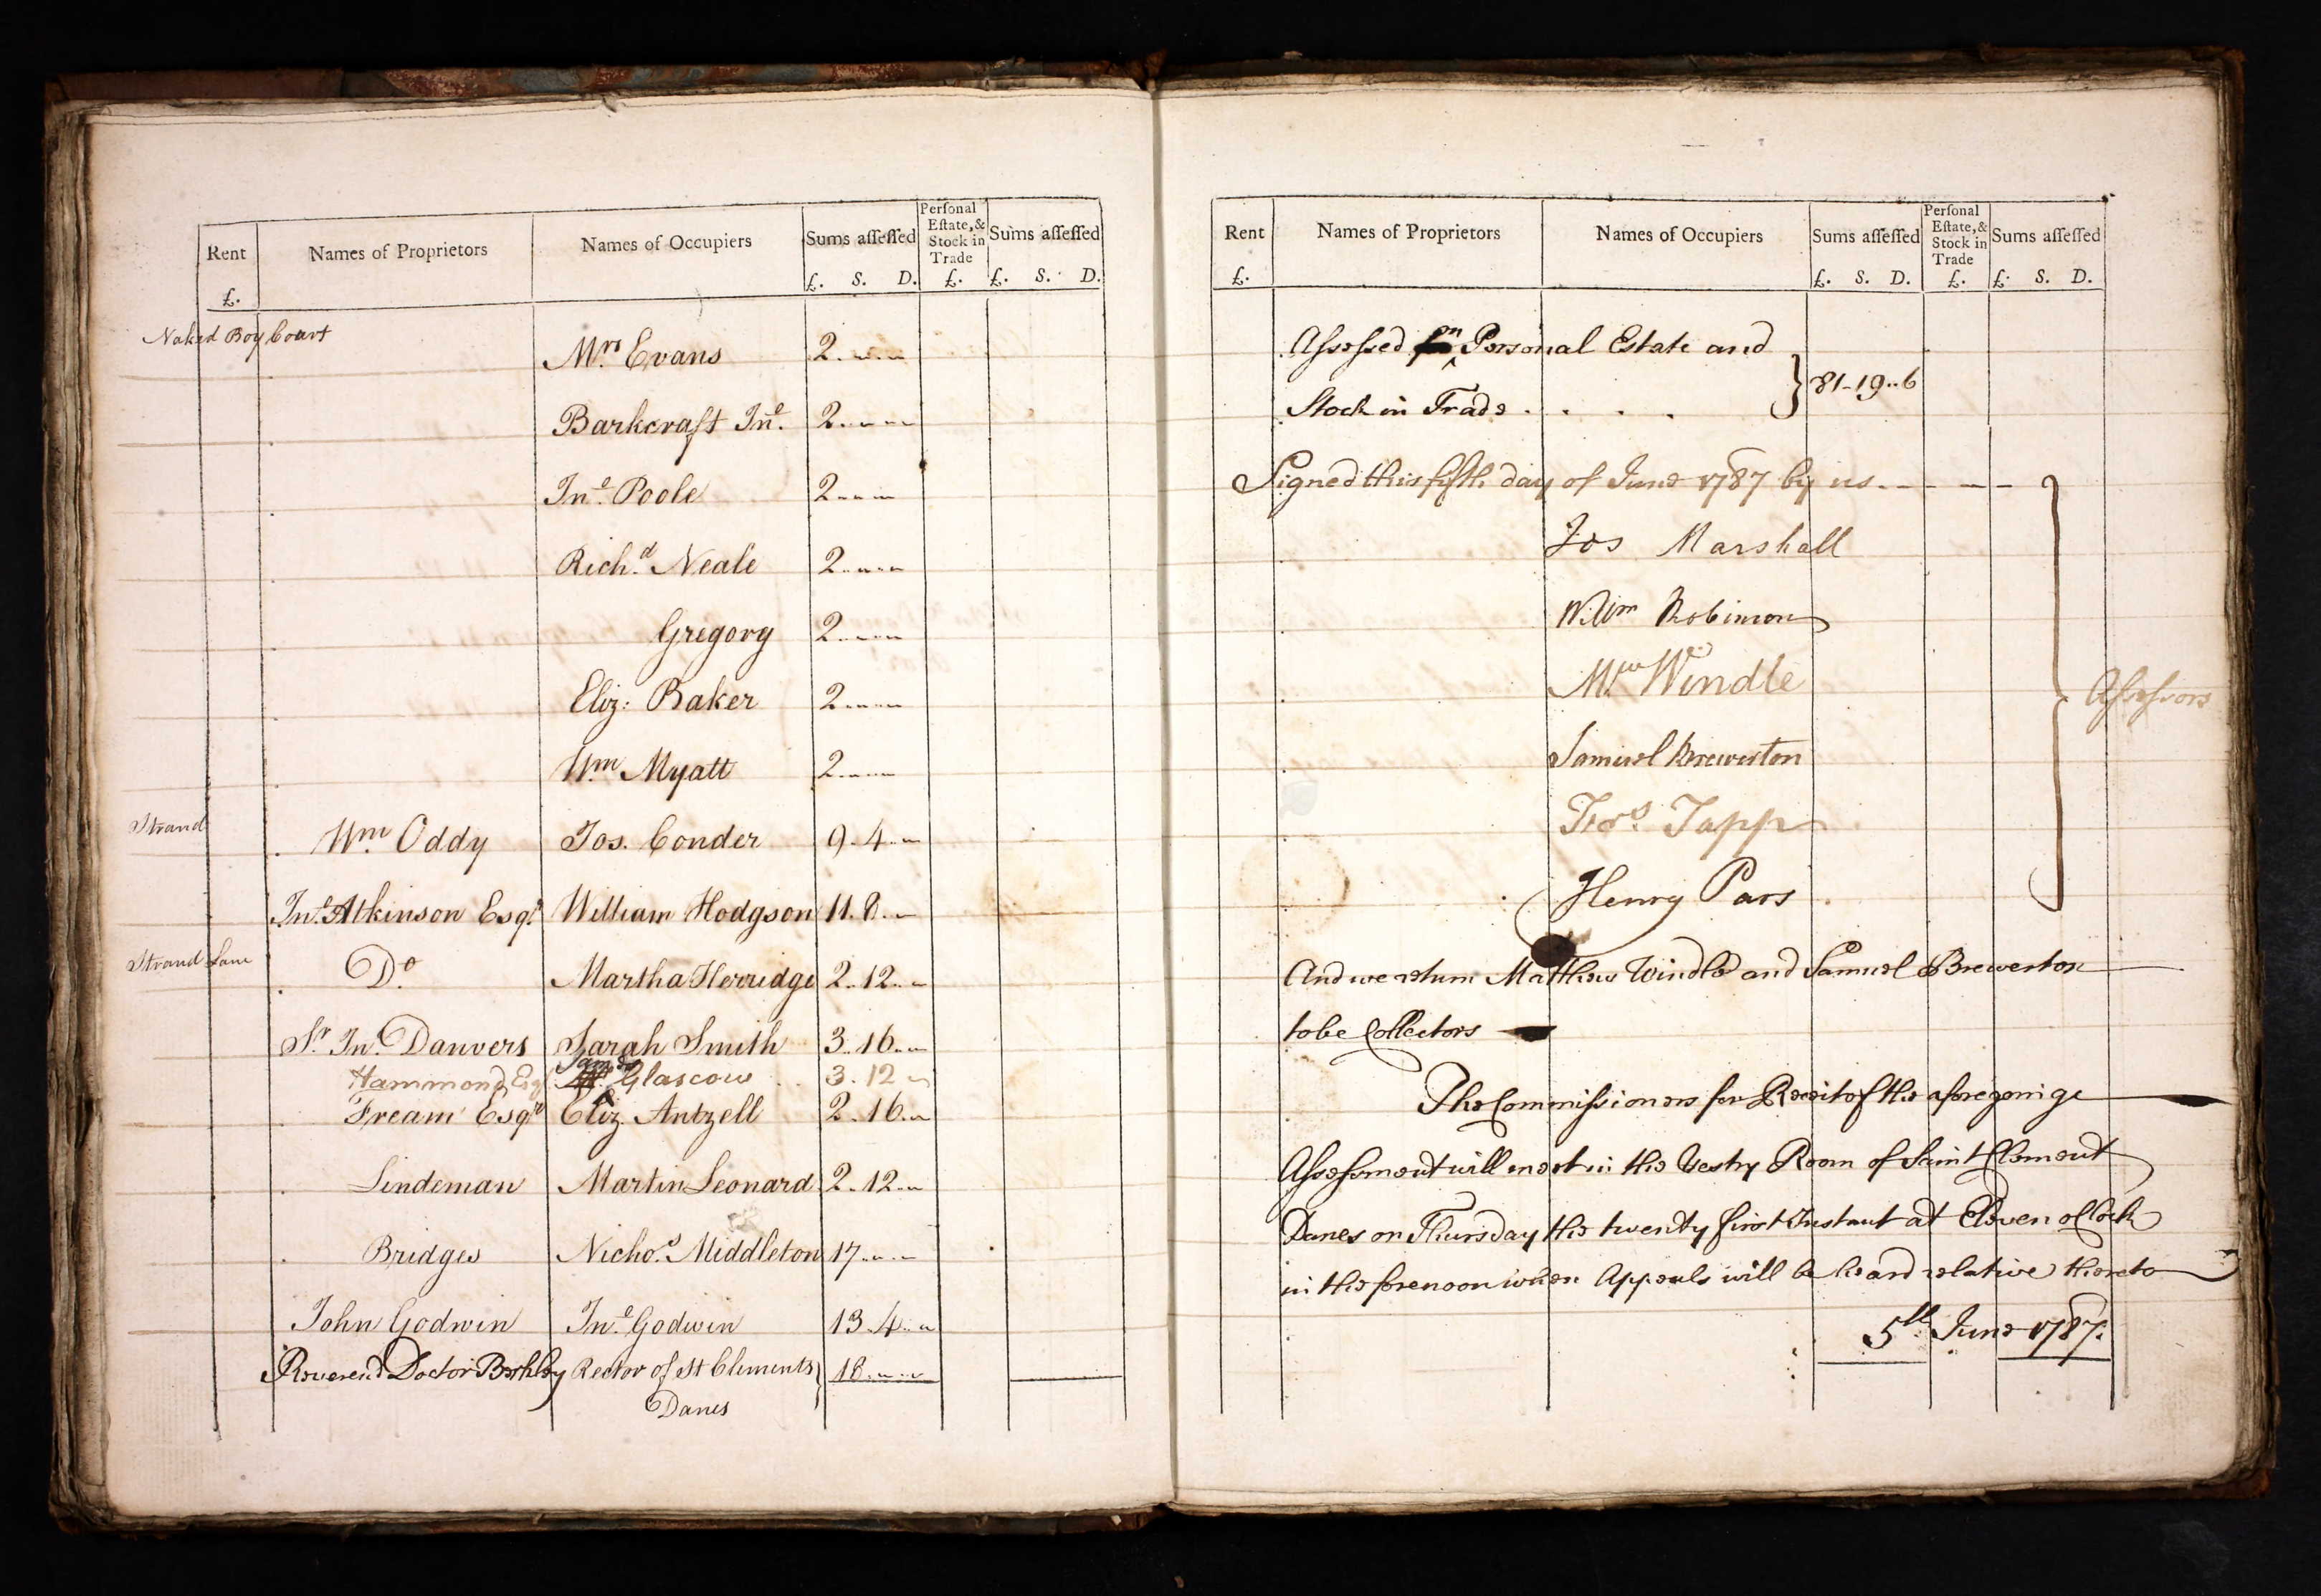 Rent Names of Proprietors Names of Occupiers Sums aſſeſſed Perſonal Eſtate, & Stock in Trade Sums aſſeſſed
£. £. S. D. £. £. S. D.
Naked Boy Court
Mrs Evans 2
Barkcraft Jno 2
Jno Poole 2
Richd Neale 2
Gregory 2
Eliz: Baker 2
Wm Myatt 2
Strand
Wm Oddy Jos. Conder 9..4
Jno Atkinson Esqr William Hodgson 11.8
Strand Lane
Do Martha Herridge 2..12
Sr Jno Danvers Sarah Smith 3..16
Hammond Esqr Glascow 3.12
Fream Esqr Eliz Antzell 2..16
Lindeman Martin Leonard 2..12
Bridges Nichos Middleton 17
John Godwin Jno Godwin 13..4
Reverend Doctor Rector of St Clements 18
Danes
Rent Names of Proprietors Names of Occupiers Sums aſſeſſed Perſonal Eſtate, & Stock in Trade Sums aſſeſſed
£. £. S. D. £. £. S. D.
Aſseſsed on Personal Estate and
Stock in Trade . . . . 81-19..6
Signed this fifth day of June 1787 by us
Jos Marshall
Willm Robinson
Mw Windle
Samuel Brewerton
Tapp
Henry Pars
Aſseſsors
And we return Matthew Windle and Samuel Brewerton
to be Collectors
The Commiſsioners for Receit of the aforegoinge
Aſseſsment will meet in the Vestry Room of Saint Clement
Danes on Thursday the twenty first Instant at Eleven oClock
in the forenoon when Appeals will be heard relative thereto
5th June 1787.